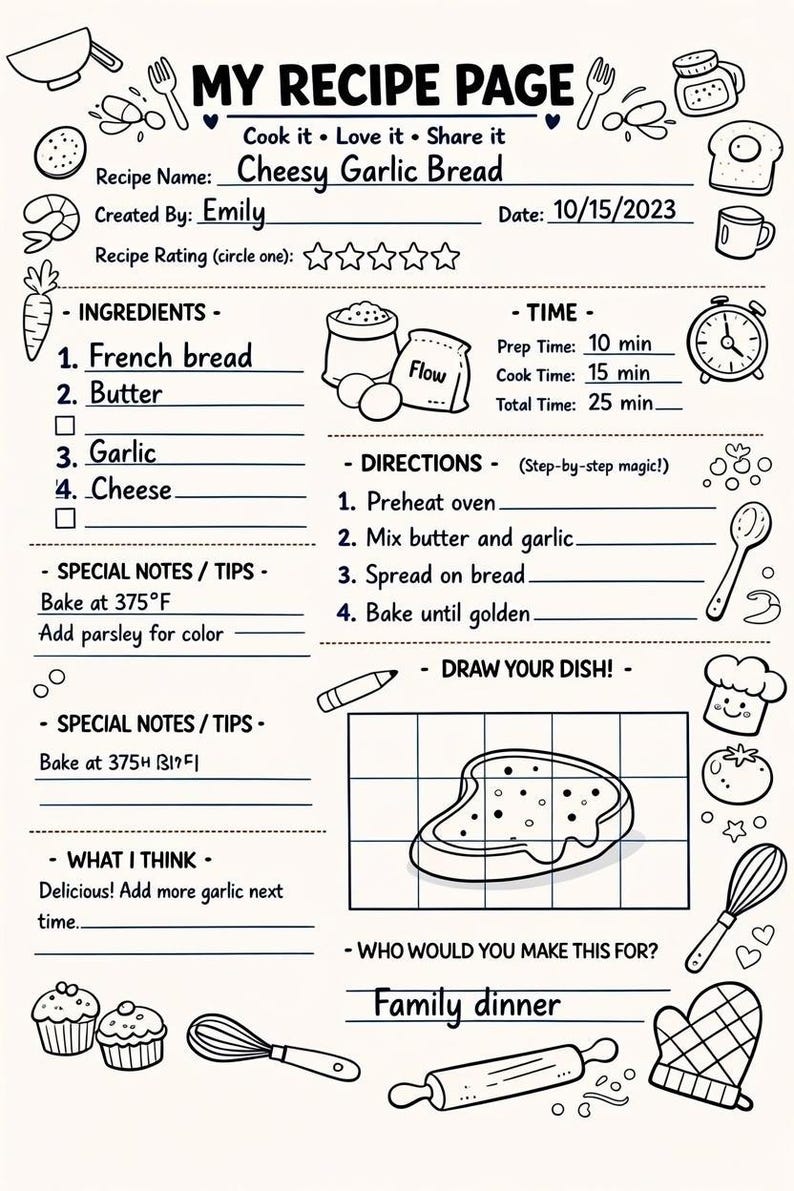 MY RECIPE PAGE
Cook it • Love it • Share it
Recipe Name: Cheesy Garlic Bread
Created By: Emily Date: 10/15/2023
Recipe Rating (circle one):
- INGREDIENTS -
1. French bread
2. Butter
3. Garlic
4. Cheese
Flow
- TIME -
Prep Time: 10 min
Cook Time: 15 min
Total Time: 25 min
- DIRECTIONS - (Step-by-step magic!)
1. Preheat oven
2. Mix butter and garlic
3. Spread on bread
4. Bake until golden
- SPECIAL NOTES / TIPS -
Bake at 375°F
Add parsley for color
- SPECIAL NOTES / TIPS -
Bake at 375
- DRAW YOUR DISH! -
- WHAT I THINK -
Delicious! Add more garlic next
time.
- WHO WOULD YOU MAKE THIS FOR?
Family dinner